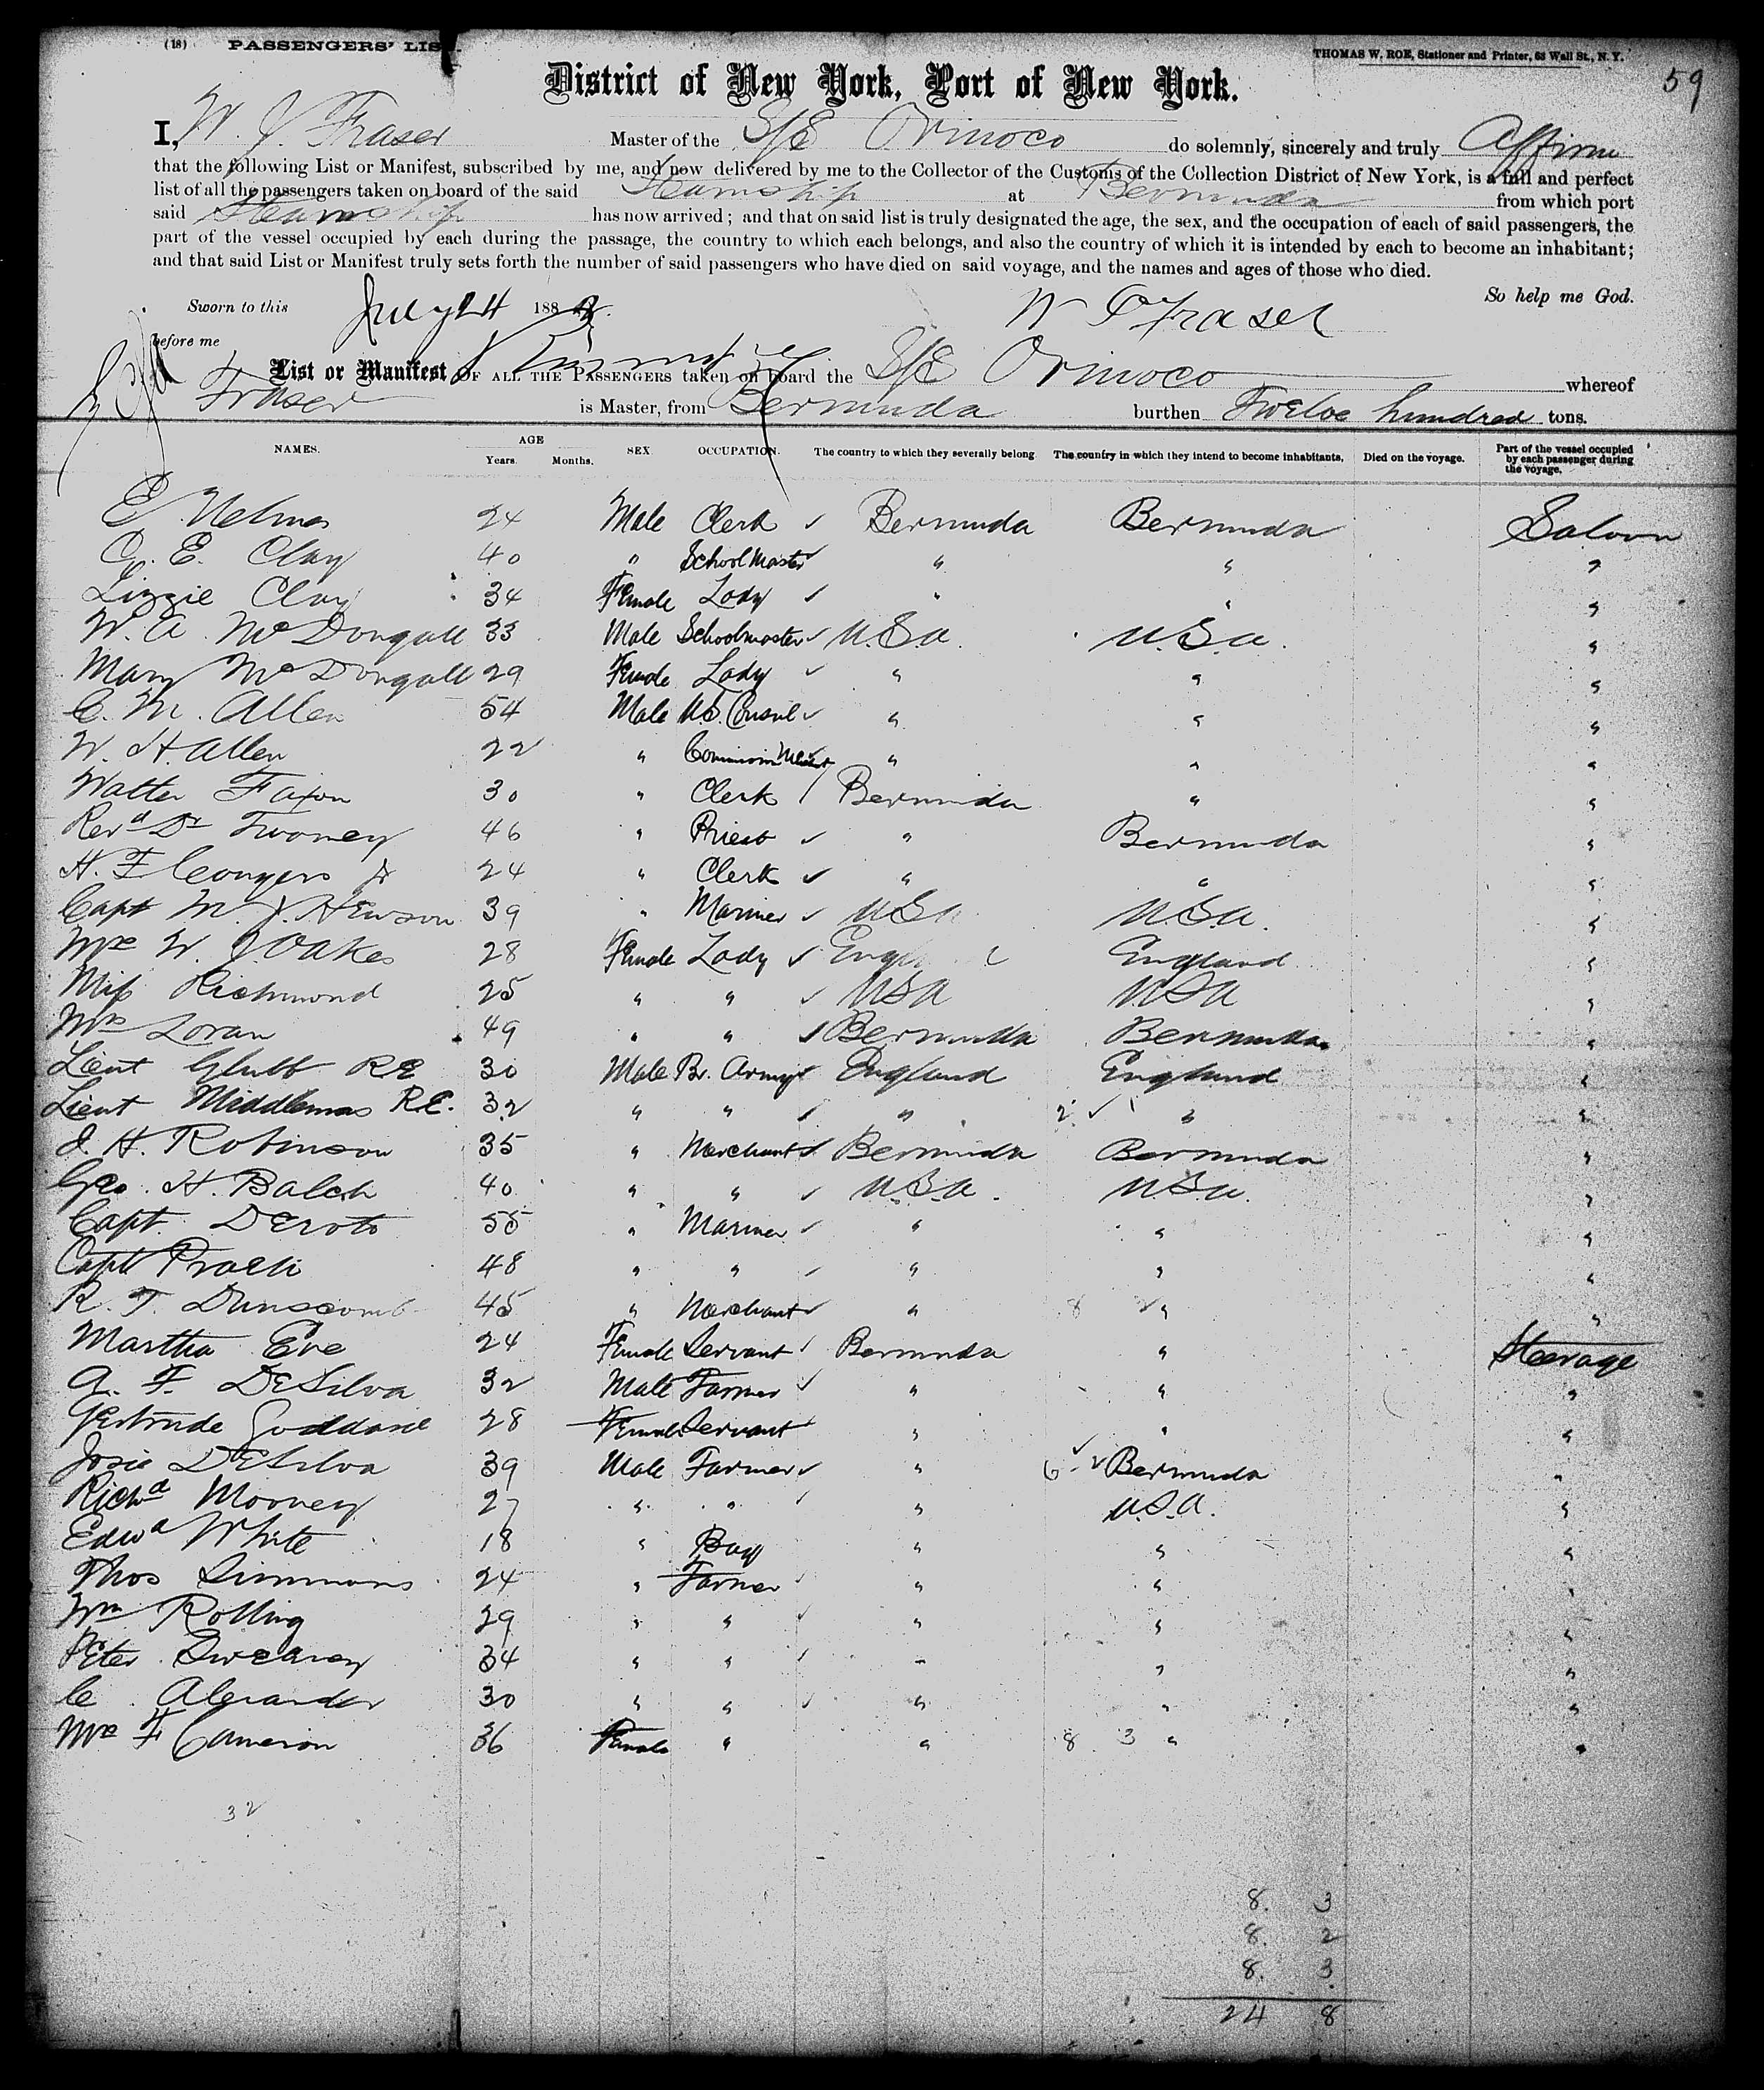 (18) PASSENGERS' LIST.
THOMAS W. ROE, Stationer and Printer, 63 Wall St., N. Y.
59
District of New York, Port of New York.
I, W. J. Fraser Master of the S/S Orinoco do solemnly, sincerely and truly Affirm
that the following List or Manifest, subscribed by me, and now delivered by me to the Collector of the Customs of the Collection District of New York, is a full and perfect
list of all the passengers taken on board of the said Steamship at Bermuda from which port
said Steamship has now arrived; and that on said list is truly designated the age, the sex, and the occupation of each of said passengers, the
part of the vessel occupied by each during the passage, the country to which each belongs, and also the country of which it is intended by each to become an inhabitant;
and that said List or Manifest truly sets forth the number of said passengers who have died on said voyage, and the names and ages of those who died.
So help me God.
Sworn to this July 24 188 W J Fraser
before me
List or Manifest OF ALL THE PASSENGERS taken on board the S/S Orinoco whereof
Fraser is Master, from Bermuda burthen Twelve hundred tons.
NAMES. AGE Years. Months. SEX. OCCUPATION. The country to which they severally belong. The country in which they intend to become inhabitants. Died on the voyage. Part of the vessel occupied by each passenger during the voyage.
E Nelmes 24 Male Clerk ✓ Bermuda Bermuda Saloon
E. Clay 40 " School Master ✓ " " "
Lizzie Clay 34 Female Lady ✓ " " "
W. A. McDougall 33 Male Schoolmaster ✓ U.S.a. U.S.a. "
Mary McDougall 29 Female Lady ✓ " " "
C. M. Allen 54 Male U.S. Consul ✓ " " "
W. H. Allen 22 " " " "
Walter Faxon 30 " Clerk / Bermuda " "
Revd Dr Twomey 46 " Priest ✓ " Bermuda "
H. F Conyers Jr 24 " Clerk ✓ " " "
Capt M. J. Hewson 39 " Mariner ✓ USa U.S.a. "
Mrs W. J Oakes 28 Female Lady ✓ England "
Miss Richmond 25 " " ✓ USA USA "
Mrs Zoran 49 " " ✓ Bermuda Bermuda "
Lieut Glubb RE 30 Male Br. Army ✓ England England "
Lieut Middlemas R.E. 32 " " ✓ " 2 ✓ " "
J. H. Robinson 35 " Merchant ✓ Bermuda Bermuda "
Geo. H. Balch 40 " " ✓ U.S.a. USa. "
Capt. DeCroto 55 " Mariner ✓ " " "
Capt 48 " " ✓ " " "
R. T. Dunscomb 45 " Merchant ✓ " 8 " "
Martha Eve 24 Female Servant ✓ Bermuda " Steerage
A. F. DeSilva 32 Male Farmer ✓ " " "
Gertrude Goddard 28 Female Servant " " "
Josie DeSilva 39 Male Farmer ✓ " 6 ✓ Bermuda "
Richd Mooney 27 " " ✓ " U.S.a. "
Edwd White 18 " Boy " " "
Thos Simmons 24 " Farmer ✓ " " "
Wm Rolling 29 " " ✓ " " "
Peter Sweaney 34 " " ✓ " " "
C. Alexander 30 " " ✓ " " "
Mrs F Cameron 36 Female " " 8 3 " "
32
8. 3
8. 2
8. 3
24 8